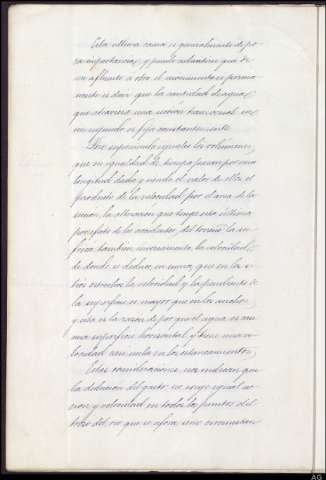 Esta ultima causa es generalmente de po-
ca importancia, y puede admitirse que de
un afluente a otro el movimiento es perma-
nente es decir que la cantidad de agua,
que atraviesa una seccion transversal en
un segundo es fija constantemente.
Pero suponiendo iguales los volumenes,
que en igualdad de tiempo pasan por una
longitud dada, y siendo el valor de ellos, el
producto de la velocidad por el area de la
seccion, la alteracion que tenga esta ultima
por efecto de los accidentes del terreno la su-
frira tambien inversamente, la velocidad;
de donde se deduce, en suma, que en los si-
tios estrechos, la velocidad y la pendiente de
la superficie es mayor que en los anchos,
y esta es la razon de por que el agua es casi
una superficie horizontal y tiene una ve-
locidad casi nula en los estancamientos.
Estas consideraciones nos indican que
la deduccion del gasto, no exige igual sec-
cion y velocidad en todos los puntos del
trozo del rio que se afora, sino